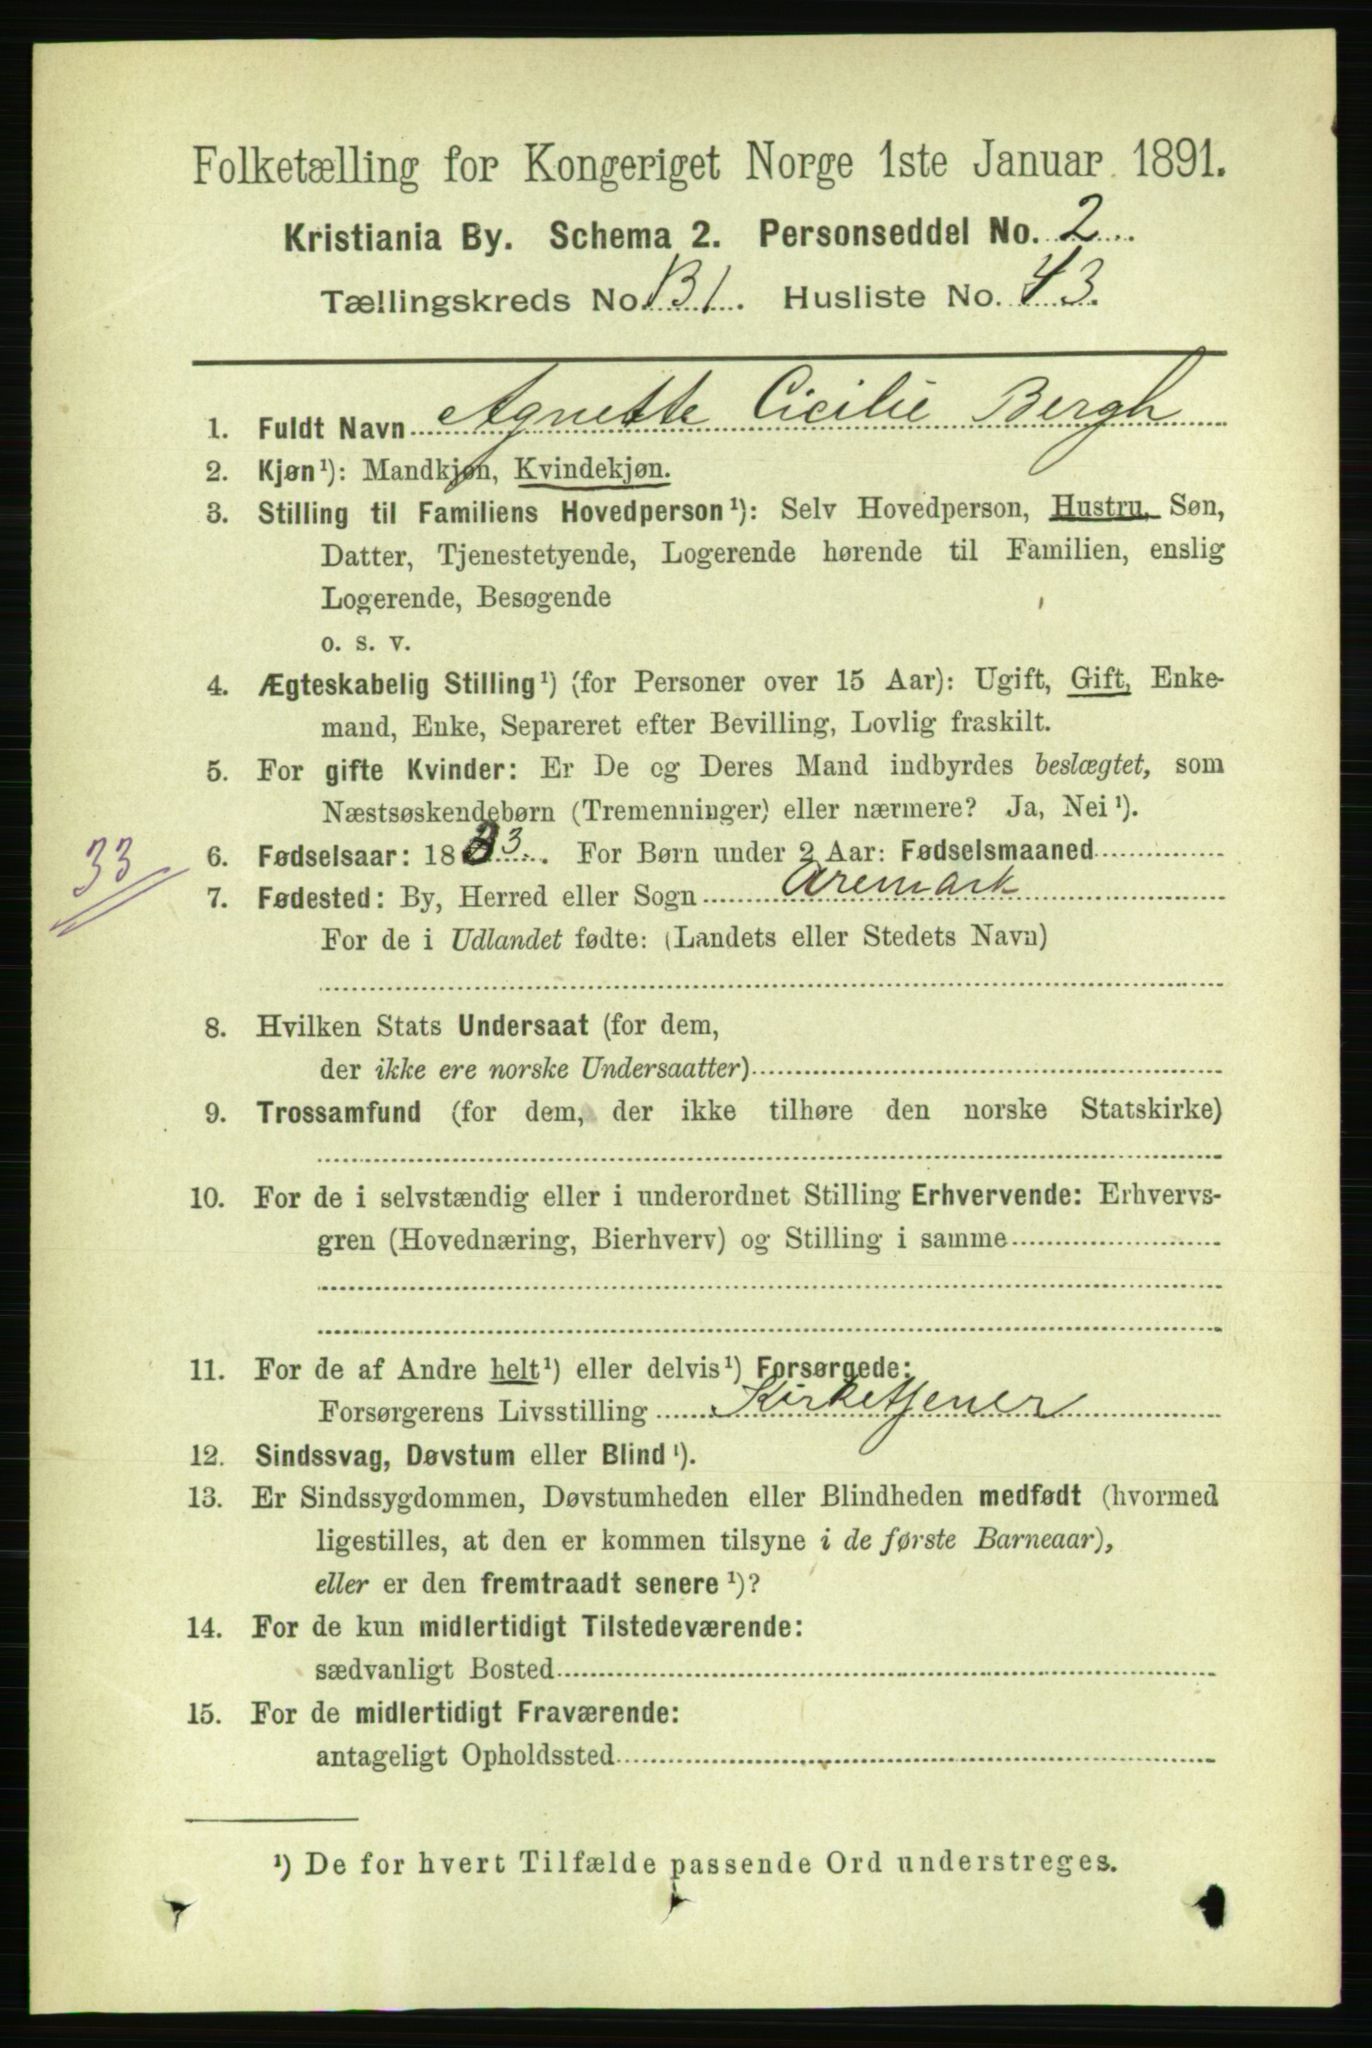 Folketælling for Kongeriget Norge 1ste Januar 1891.
Kristiania By. Schema 2. Personseddel No. 2
Tællingskreds No. B1. Husliste No. 43.
1. Fuldt Navn Agnette Cicilie Bergh
2. Kjøn¹): Mandkjøn, Kvindekjøn.
3. Stilling til Familiens Hovedperson¹): Selv Hovedperson, Hustru, Søn,
Datter, Tjenestetyende, Logerende hørende til Familien, enslig
Logerende, Besøgende
o. s. v.
4. Ægteskabelig Stilling¹) (for Personer over 15 Aar): Ugift, Gift, Enke-
mand, Enke, Separeret efter Bevilling, Lovlig fraskilt.
5. For gifte Kvinder: Er De og Deres Mand indbyrdes beslægtet, som
Næstsøskendebørn (Tremenninger) eller nærmere? Ja, Nei¹).
33
6. Fødselsaar: 1833. For Børn under 2 Aar: Fødselsmaaned
7. Fødested: By, Herred eller Sogn Aremark
For de i Udlandet fødte: (Landets eller Stedets Navn)
8. Hvilken Stats Undersaat (for dem,
der ikke ere norske Undersaatter)
9. Trossamfund (for dem, der ikke tilhøre den norske Statskirke)
10. For de i selvstændig eller i underordnet Stilling Erhvervende: Erhvervs-
gren (Hovednæring, Bierhverv) og Stilling i samme
11. For de af Andre helt¹) eller delvis¹) Forsørgede:
Forsørgerens Livsstilling Kirketjener
12. Sindssvag, Døvstum eller Blind¹).
13. Er Sindssygdommen, Døvstumheden eller Blindheden medfødt (hvormed
ligestilles, at den er kommen tilsyne i de første Barneaar),
eller er den fremtraadt senere¹)?
14. For de kun midlertidigt Tilstedeværende:
sædvanligt Bosted
15. For de midlertidigt Fraværende:
antageligt Opholdssted
¹) De for hvert Tilfælde passende Ord understreges.